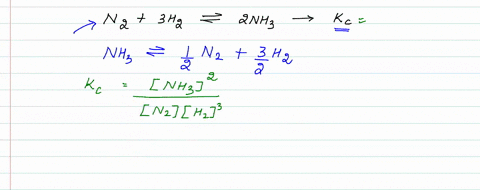 N2 + 3H2 ⇌ 2NH3 → Kc =
NH3 ⇌ 1/2 N2 + 3/2 H2
Kc = [NH3]^2 / [N2][H2]^3